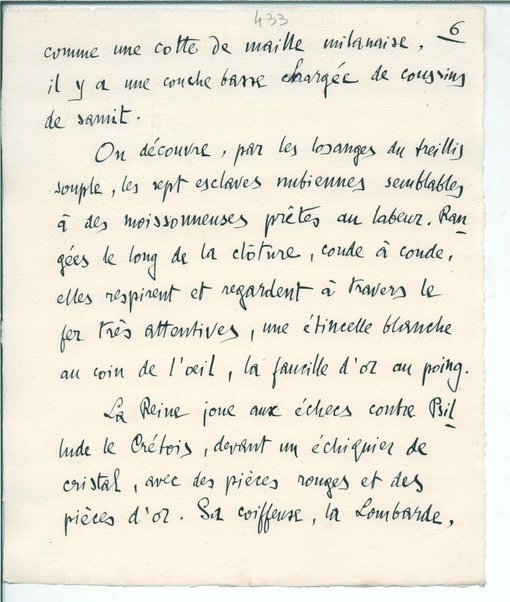 433
6
comme une cotte de maille milanaise,
il y a une couche basse chargée de coussins
de samit.
On découvre, par les losanges du treillis
souple, les sept esclaves nubiennes semblables
à des moissonneuses prêtes au labeur. Ran
gées le long de la clôture, coude à coude,
elles respirent et regardent à travers le
fer très attentives, une étincelle blanche
au coin de l'œil, la faucille d'or au poing.
La Reine joue aux échecs contre Bil
lude le Crétois, devant un échiquier de
cristal, avec des pièces rouges et des
pièces d'or. Sa coiffeuse, la Lombarde,